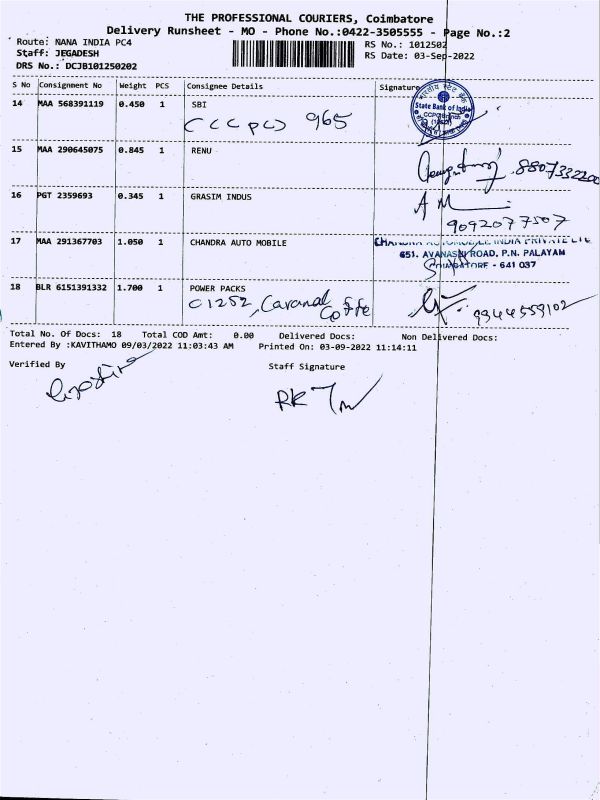 THE PROFESSIONAL COURIERS, Coimbatore
Delivery Runsheet - MO - Phone No.:0422-3505555 - Page No.:2
Route: NANA INDIA PC4
RS No.: 1012502
Staff: JEGADESH
RS Date: 03-Sep-2022
DRS No.: DCJB101250202
S No Consignment No Weight PCS Consignee Details Signature
14 MAA 568391119 0.450 1 SBI
State Bank of India
965
15 MAA 290645075 0.845 1 RENU
16 PGT 2359693 0.345 1 GRASIM INDUS
A M
9092077507
17 MAA 291367703 1.050 1 CHANDRA AUTO MOBILE
651. AVANASHI ROAD. P.N. PALAYAM
COIMBATORE - 641 037
18 BLR 6151391332 1.700 1 POWER PACKS
9944559102
Total No. Of Docs: 18 Total COD Amt: 0.00 Delivered Docs: Non Delivered Docs:
Entered By :KAVITHAMO 09/03/2022 11:03:43 AM Printed On: 03-09-2022 11:14:11
Verified By Staff Signature